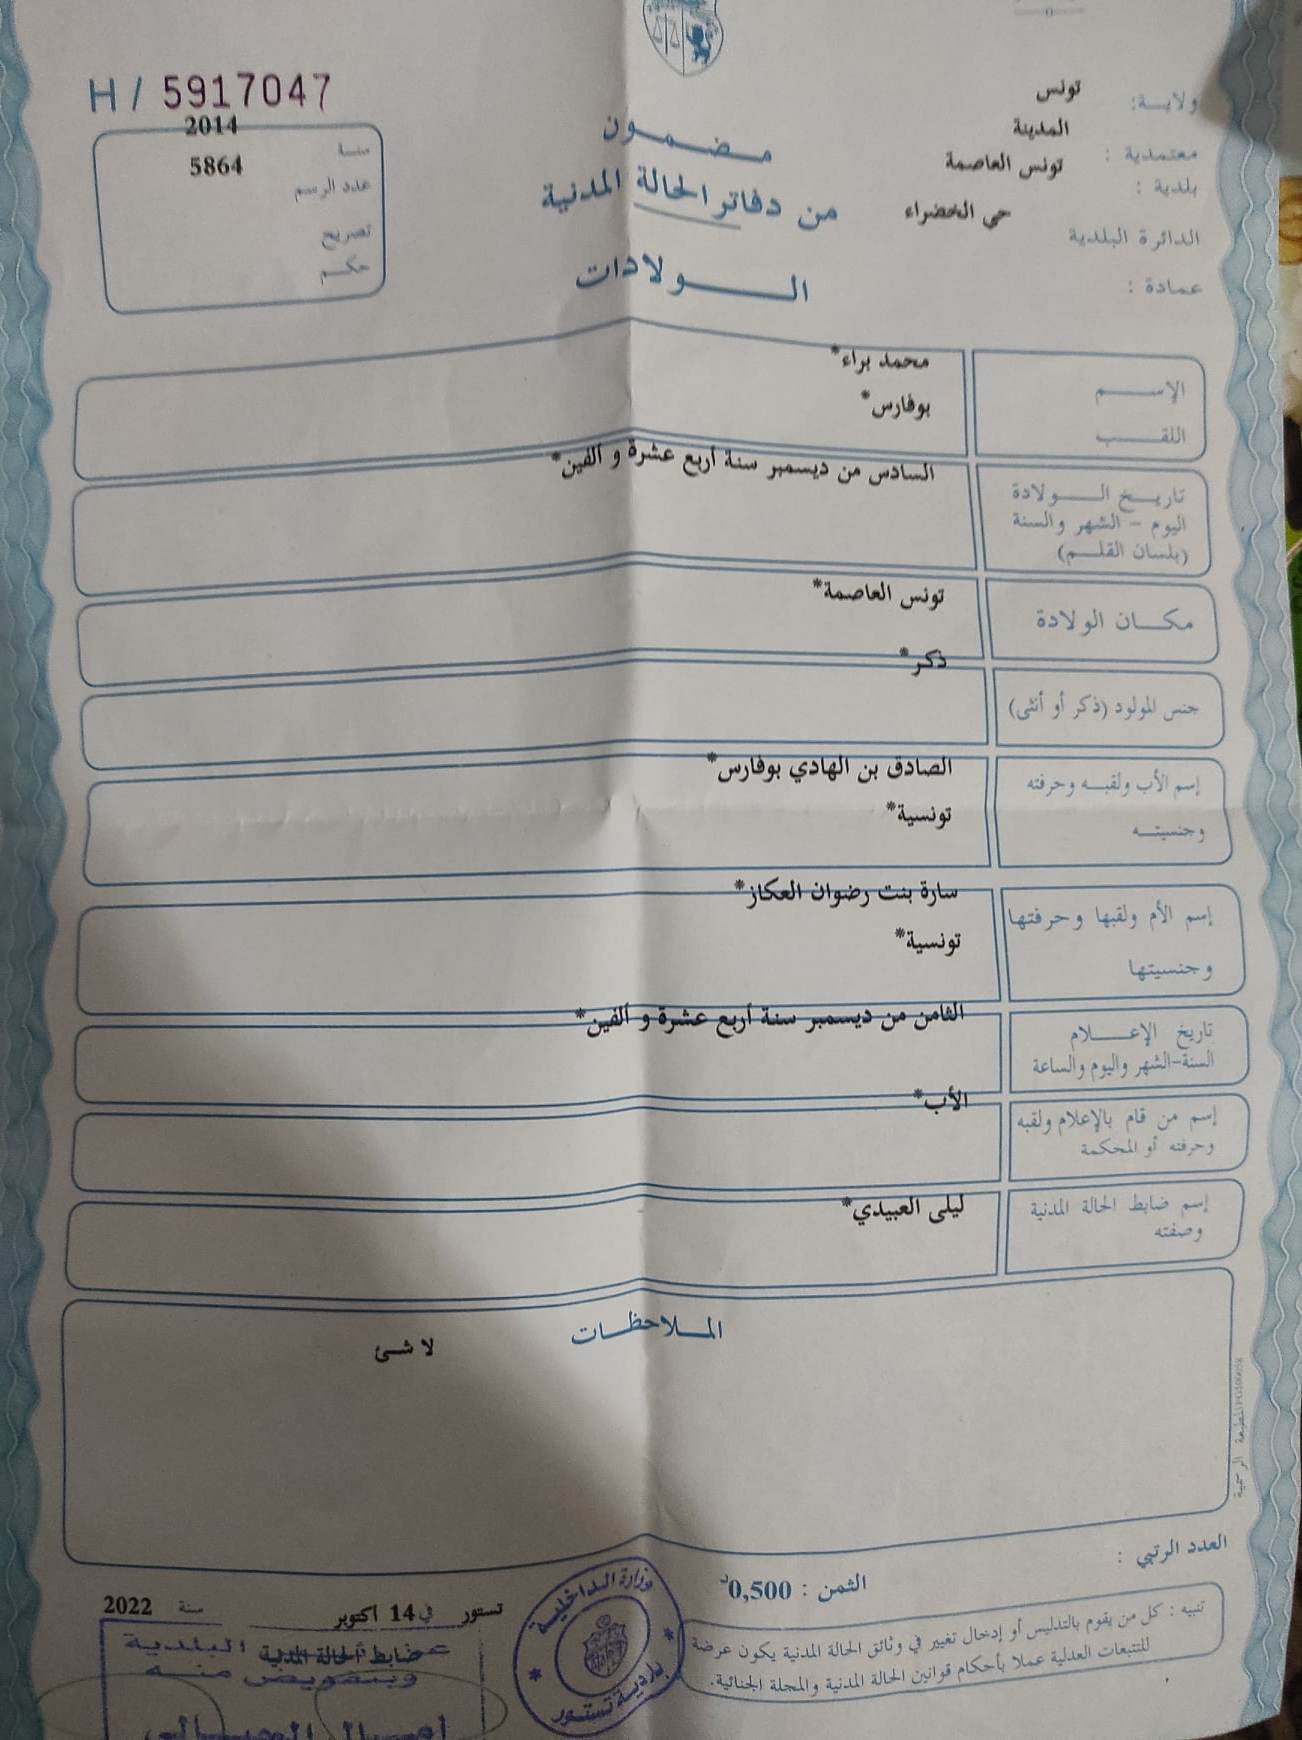 H / 5917047
سنة 2014
عدد الرسم 5864
تصريح
حكم
مضمون
من دفاتر الحالة المدنية
الولادات
ولاية: تونس
معتمدية : المدينة
بلدية : تونس العاصمة
الدائرة البلدية حي الخضراء
عمادة :
الإسم محمد براء*
اللقب بوفارس*
تاريخ الولادة السادس من ديسمبر سنة أربع عشرة و ألفين*
اليوم - الشهر والسنة
(بلسان القلم)
مكان الولادة تونس العاصمة*
جنس المولود (ذكر أو أنثى) ذكر*
إسم الأب ولقبه وحرفته الصادق بن الهادي بوفارس*
وجنسيته تونسية*
إسم الأم ولقبها وحرفتها سارة بنت رضوان العكاز*
وجنسيتها تونسية*
تاريخ الإعلام الثامن من ديسمبر سنة أربع عشرة و ألفين*
السنة-الشهر واليوم والساعة
إسم من قام بالإعلام ولقبه الأب*
وحرفته أو المحكمة
إسم ضابط الحالة المدنية ليلى العبيدي*
وصفته
الملاحظات
لا شئ
المطبعة الرسمية
العدد الرتبي :
الثمن : 0,500د
تنبيه : كل من يقوم بالتدليس أو إدخال تغيير في وثائق الحالة المدنية يكون عرضة
للتتبعات العدلية عملا بأحكام قوانين الحالة المدنية والمجلة الجنائية.
تستور في 14 أكتوبر سنة 2022
ضابط الحالة المدنية
البلدية
وبتفويض منه
وزارة الداخلية
بلدية تستور